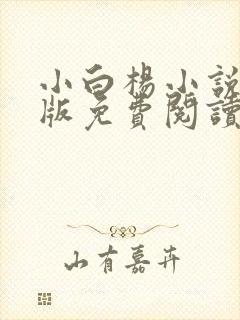 小白楊小說
版免費閱讀
山有嘉卉